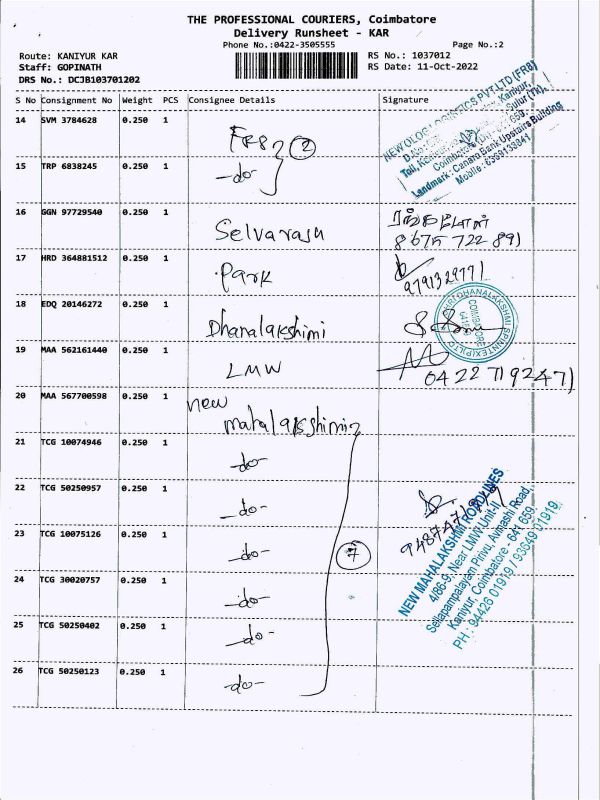 THE PROFESSIONAL COURIERS, Coimbatore
Delivery Runsheet - KAR
Phone No.:0422-3505555 Page No.:2
Route: KANIYUR KAR RS No.: 1037012
Staff: GOPINATH RS Date: 11-Oct-2022
DRS No.: DCJB103701202
S No Consignment No Weight PCS Consignee Details Signature
14 SVM 3784628 0.250 1 FR8 2
NEWOLOGISTICS PVT.LTD (FR8)
Landmark: Canara Bank Upstairs Building
15 TRP 6838245 0.250 1 -do-
16 GGN 97729540 0.250 1 Selvarasu
17 HRD 364881512 0.250 1 Park
18 EDQ 20146272 0.250 1 Dhanalakshimi
COIMBATORE
19 MAA 562161440 0.250 1 LMW 0422 7192471
20 MAA 567700598 0.250 1 new mahalakshimi
21 TCG 10074946 0.250 1 -do-
22 TCG 50250957 0.250 1 -do-
23 TCG 10075126 0.250 1 -do- 7
24 TCG 30020757 0.250 1 -do-
25 TCG 50250402 0.250 1 -do-
26 TCG 50250123 0.250 1 -do-
NEW MAHALAKSHMI ROADLINES
4/86-9, Near LMW Unit-II,
Sellapampalayam Pirivu, Avinashi Road,
Kaniyur, Coimbatore - 641 659.
PH : 94426 01919 / 93649 01919.